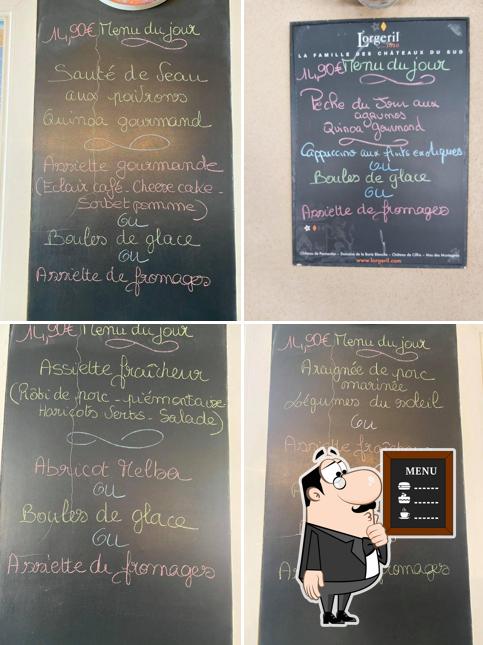 14,90€ Menu du jour
Sauté de Veau
aux poivrons
Quinoa gourmand
Assiette gourmande
(Eclair café - Cheese cake -
Sorbet pomme)
ou
Boules de glace
ou
Assiette de fromages
Lorgeril
1620
LA FAMILLE DES CHÂTEAUX DU SUD
14,90€ Menu du jour
Pêche du Jour aux
agrumes
Quinoa gourmand
Cappuccino aux fruits exotiques
ou
Boules de glace
ou
Assiette de fromages
Château de Pennautier - Domaine de la Borie Blanche - Château de Ciffre - Mas des Montagnes
www.lorgeril.com
14,90€ Menu du jour
Assiette fraîcheur
(Rôti de porc - piémontaise
Haricots Verts - Salade)
Abricot Melba
ou
Boules de glace
ou
Assiette de fromages
14,90€ Menu du jour
Araignée de porc
marinée
Légumes du soleil
ou
Assiette
MENU